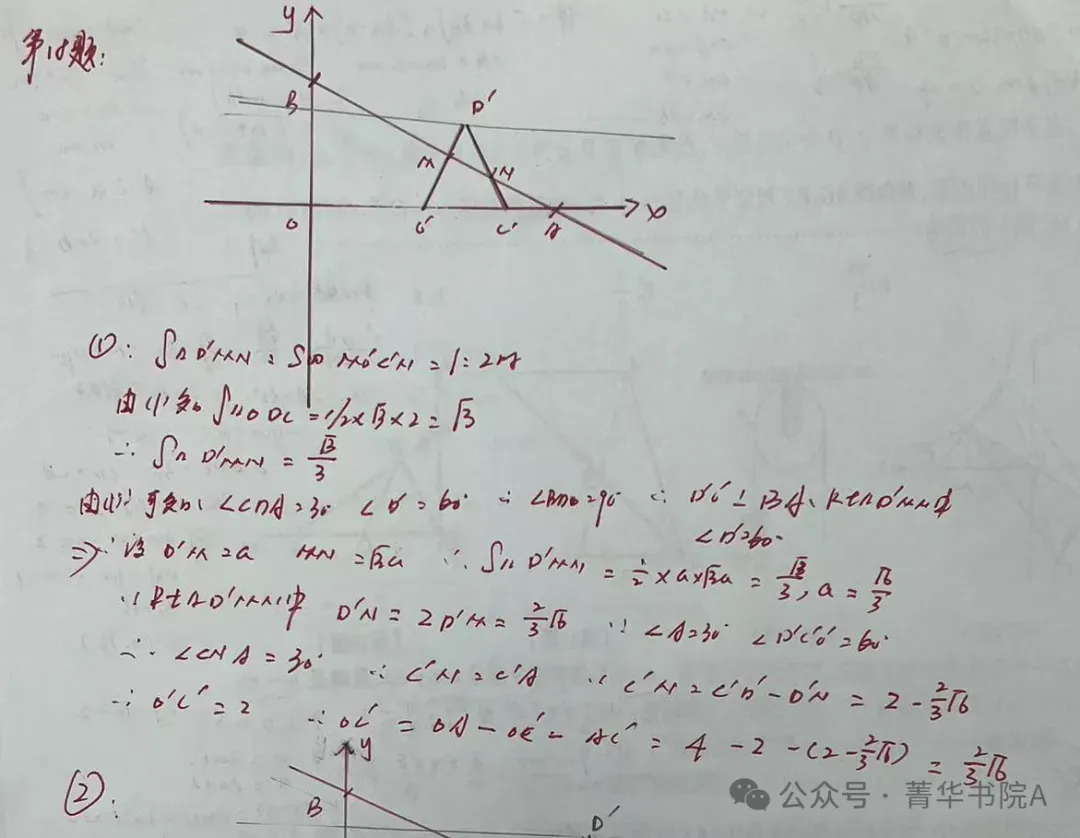 第18题:
y
B
D'
M
N
O
O'
C'
A
x
① ∵ S△D'MN = S▱MO'C'N = 1:2
由(1)知 S△ODC = 1/2×√3×2 = √3
∴ S△D'MN = √3/3
由(1)可知, ∠CDA = 30° ∠D' = 60° ∴ ∠BMO' = 90° ∴ D'O' ⊥ BA, Rt△D'MN中
∠D' = 60°
=> ∵ 设 D'M = a MN = √3a ∴ S△D'MN = 1/2 × a × √3a = √3/3, a = √6/3
∵ Rt△D'MN中 D'N = 2D'M = 2/3√6 ∵ ∠A = 30° ∠D'C'O' = 60°
∴ ∠CNA = 30° ∴ C'N = C'A ∵ C'N = C'D' - D'N = 2 - 2/3√6
∴ O'C' = 2 ∴ OO' = OA - O'C' - AC' = 4 - 2 - (2 - 2/3√6) = 2/3√6
②:
y
B
D'
公众号 · 菁华书院A